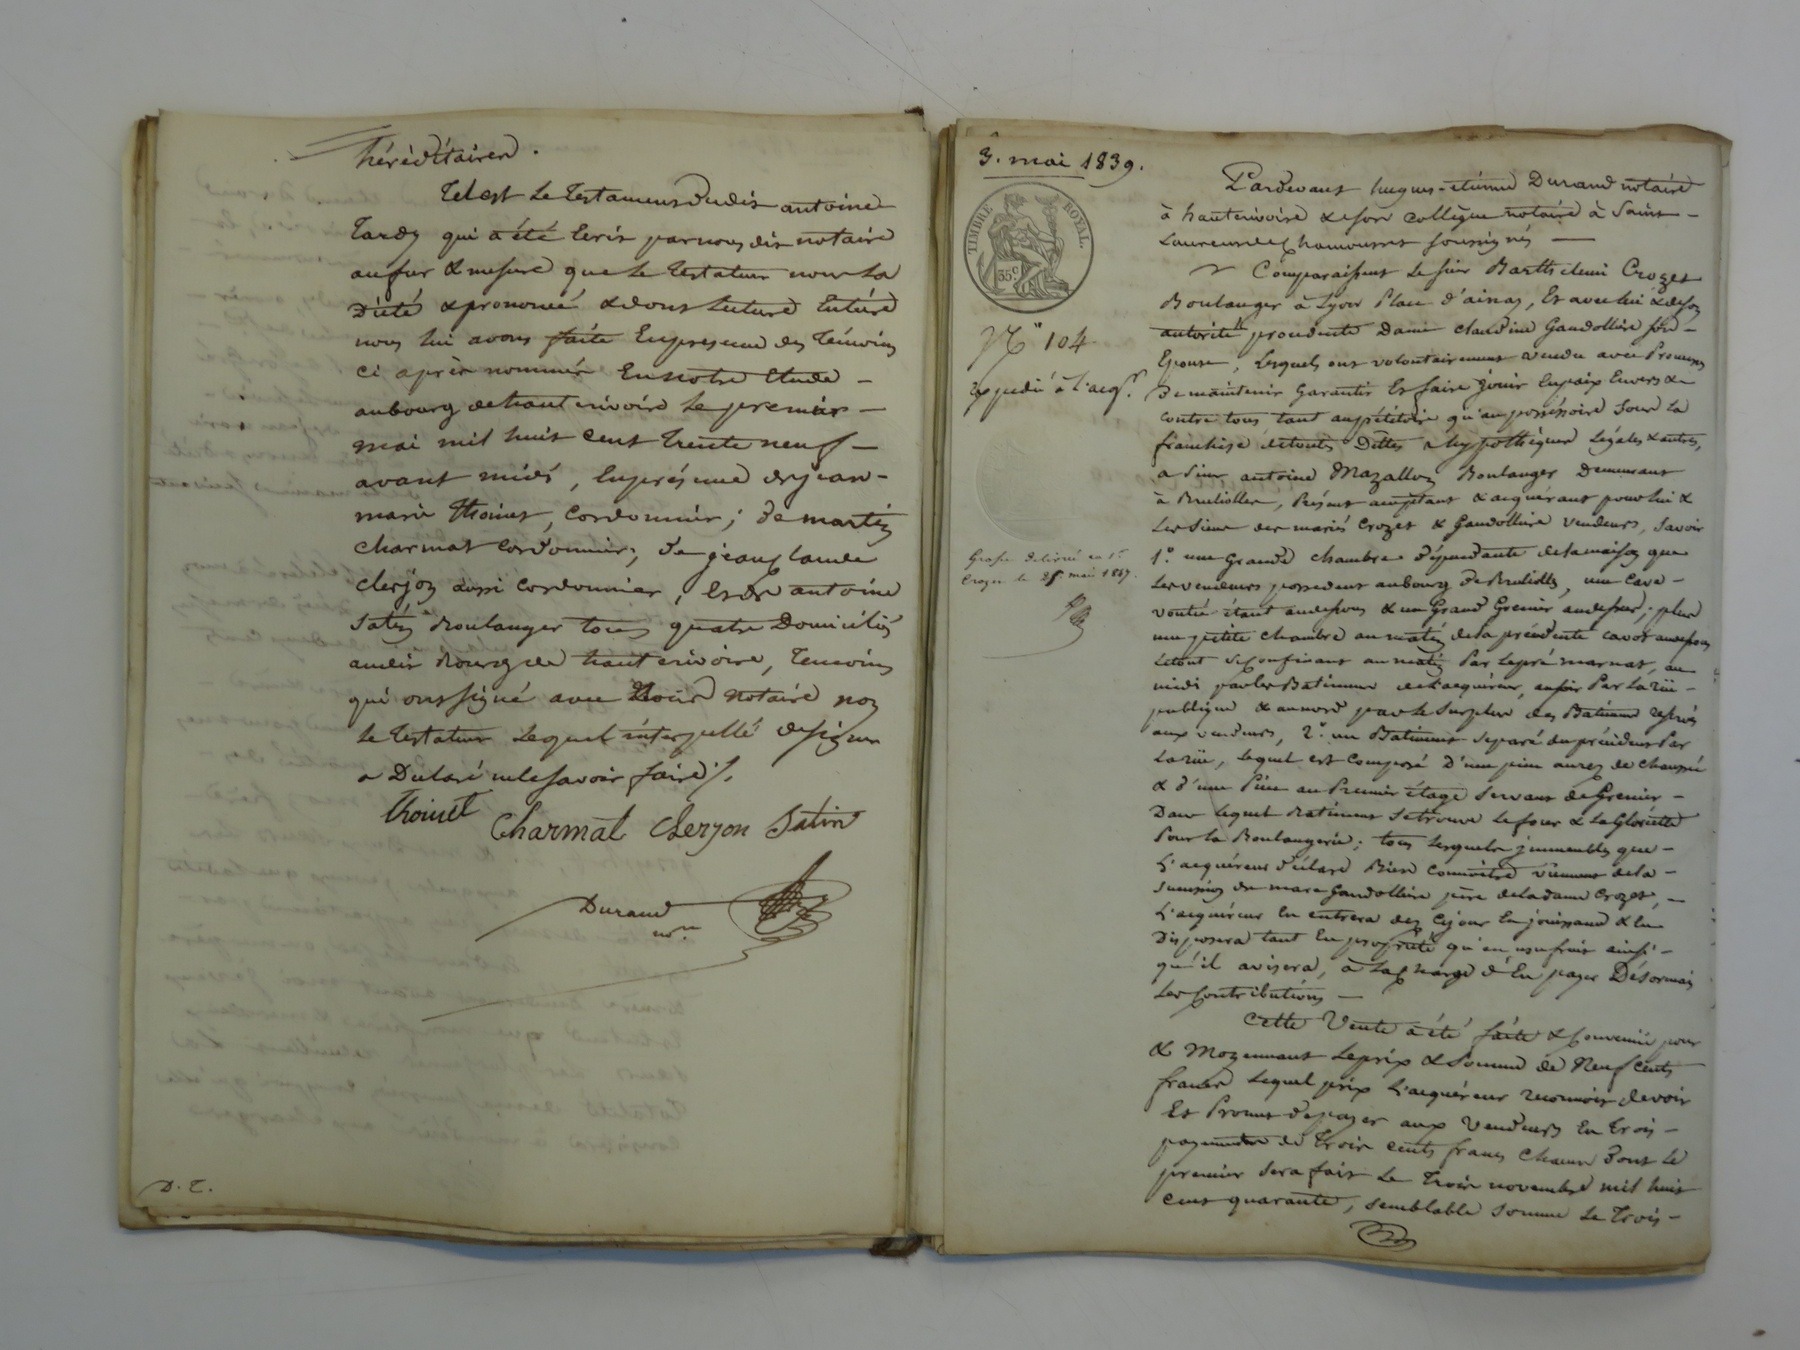 héréditaires.
Tel est le testament dudit antoine
Tardy qui a été Ecrit par nous dit notaire
au fur & mesure que le testateur nous l'a
Dicté & prononcé, & dont lecture Entière
nous lui avons faite En présence des Témoins
ci après nommés En notre Etude –
au bourg de hauterivoire le premier –
mai mil huit cent trente neuf –
avant midi, En présence de jean-
marie Thoinet, Cordonnier; de martin
charmat cordonnier; de jean claude
clerjon aussi cordonnier, Et de antoine
Satin Boulanger tous quatre Domiciliés
au dit Bourg de hauterivoire, Témoins
qui ont signé avec Nous notaire non
le testateur lequel interpellé de signer
a Déclaré ne le savoir faire ./.
Thoinet Charmat Clerjon Satin
Durand
nore
D. T.
3. mai 1839.
TIMBRE ROYAL.
35c
No 104
Expédié à l'acqr.
Grosse delivré en 1e
Crozet le 25 mai 1847.
Pardevant hugues-étienne Durand notaire
à hauterivoire & son collègue notaire à Saint –
Laurent de Chamousset soussignés —
Comparaissent le sieur Barthélemi Crozet
Boulanger à Lyon Place d'ainay, Et avec lui & de son
autorité procédante Dame claudine Gaudollière son –
Epouse, Lesquels ont volontairement vendu avec Promesse
De maintenir Garantir Et faire jouir En paix Envers &
contre tous tant au pétitoire qu'au possessoire sous la
franchise de toutes Dettes & hypothèques légales & autres,
a Sieur antoine Mazallon Boulanger Demeurant
à Brullioles, Présent acceptant & acquérant pour lui &
Les Siens des mariés Crozet & Gaudollière vendeurs, Savoir
1o. une Grande chambre dépendante de la maison que
les vendeurs possedent au bourg de Brullioles, une Cave –
voutée étant au dessous & un Grand Grenier au dessus; plus
une petite chambre au matin de la précédente cavot au dessous
Le tout se Confinant au matin Par le pré marnat, au
midi par les Batiments de l'acquéreur, au soir Par la rüe –
publique & au nord par le surplus des Batiments réservés
aux vendeurs, 2o. un Batiment séparé du précédent Par
La rüe, lequel est Composé D'une pièce au rez de chaussée
& d'une Pièce au Premier étage servant de Grenier –
Dans lequel Batiment se trouve le four & la Gloriette
Pour la Boulangerie; tous lesquels immeubles que –
L'acquéreur déclare Bien Connoître viennent de la –
succession de marc Gaudollière père de la dame Crozet, –
L'acquéreur En entrera dès Ce jour En jouissance & En
Disposera tant En propriété qu'en usufruit ainsi –
qu'il avisera, à la charge d'En payer Désormais
Les Contributions —
Cette Vente a été faite & Convenüe pour
& Moyennant Le prix & Somme de Neuf cents
francs Lequel prix L'acquéreur reconnoit devoir
Et Promet de payer aux Vendeurs En trois –
payements de trois cents francs Chacun Dont le
premier sera fait Le trois novembre mil huit
cent quarante, semblable Somme le trois –